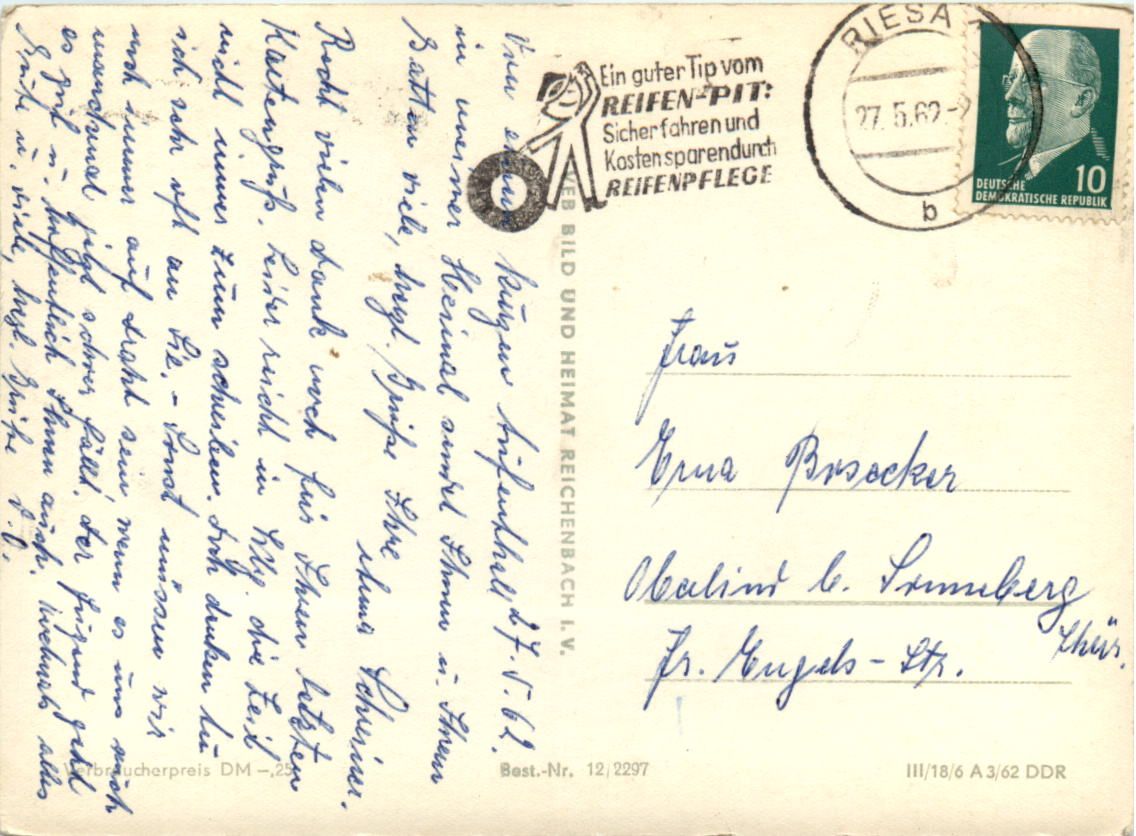 RIESA
27.5.62
b
Ein guter Tip vom
REIFEN-PIT:
Sicher fahren und
Kosten sparen durch
REIFENPFLEGE
DEUTSCHE
DEMOKRATISCHE REPUBLIK
10
Von einem kurzen Aufenthalt 27.5.62.
in unserer Heimat sendet Ihnen u. Ihrem
Gatten viele, herzl. Grüße Ihre
Schreiner.
Recht vielen Dank noch für Ihren letzten
Kartengruß. Leider reicht in die Zeit
nicht immer zum schreiben. doch denken tu
ich sehr oft an Sie. – Sonst müssen wir
noch immer auf Draht sein wenn es uns auch
manchmal jetzt schwer fällt. Der Jugend geht
es gut u. hoffentlich Ihnen auch. Nochmals alles
Gute u. viele, herzl. Grüße d. O.
VEB BILD UND HEIMAT REICHENBACH I. V.
Frau
Erna Bosecker
Oberlind b. Sonneberg
Thür.
Fr. Engels-Str.
Verbraucherpreis DM –,25
Best.-Nr. 12/2297
III/18/6 A 3/62 DDR